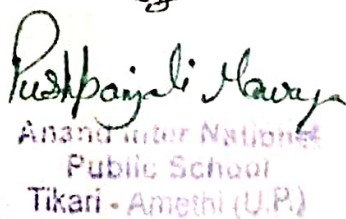 Pushpanjali Maurya
Anand Inter National
Public School
Tikari - Amethi (U.P.)